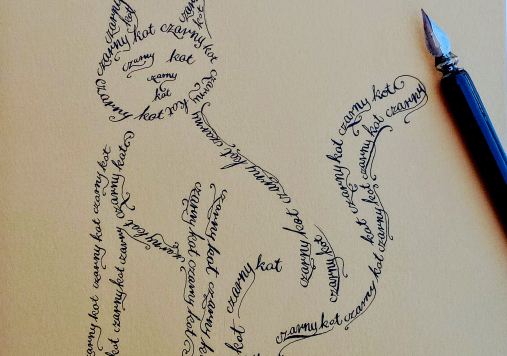 czarny
kot
czarny kot czarny
kot
czarny kot
czarny
kot
czarny kot
czarny kot czarny
czarny kot
czarny kot
czarny kot
czarny
czarny kot czarny kot
czarny kot
czarny kot
czarny kot
czarny kot czarny kot
czarny kot czarny
kot
czarny kot
czarny kot
kot
czarny kot
kot czarny
czarny kot
czarny kot